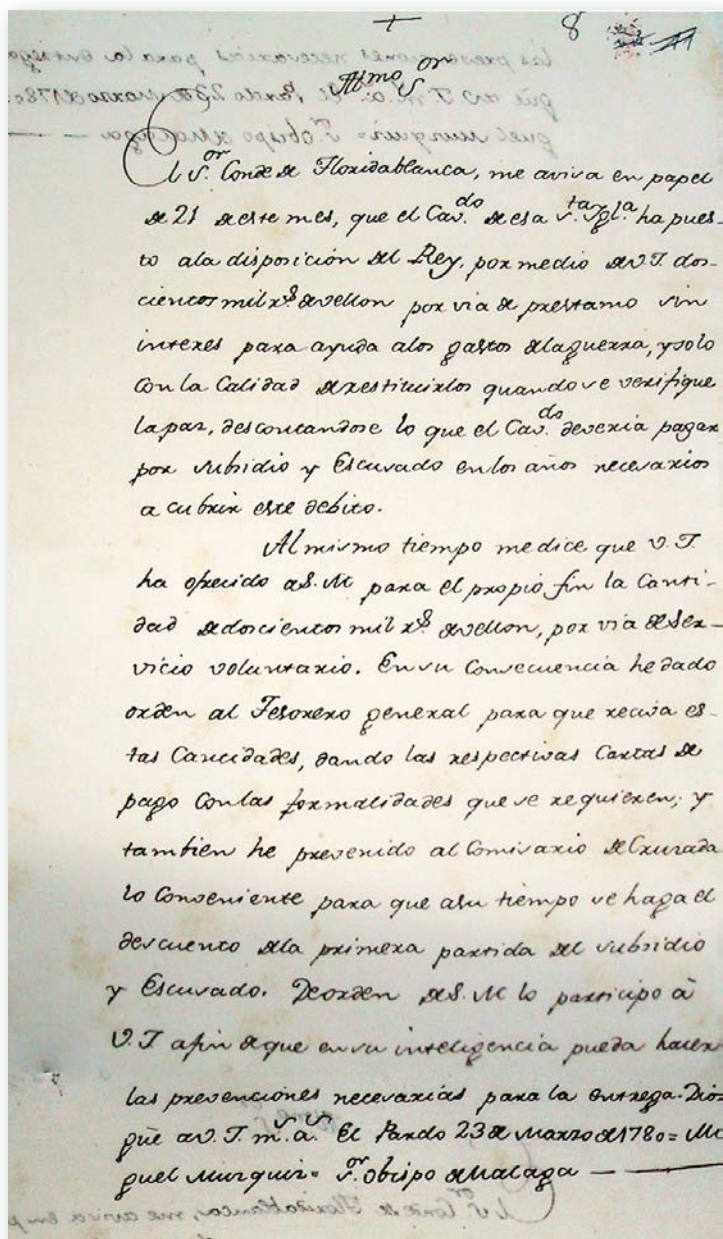 +
8
Illmo Sor
El Sor. Conde de Floridablanca, me aviva en papel
de 21 de este mes, que el Cavdo. de esa Sta. Ygla. ha pues-
to ala disposición del Rey, por medio de V.I. dos-
cientos mil rs. de vellon por via de prestamo sin
interes para ayuda alos gastos dela guerra, y solo
con la Calidad de restituirlos quando se verifique
la paz, descontandose lo que el Cavdo. deveria pagar
por subsidio y Escusado en los años necesarios
a cubrir este debito.
Al mismo tiempo me dice que V.I.
ha ofrecido a S.M para el propio fin la Canti-
dad de doscientos mil rs. de vellon, por via de Ser-
vicio voluntario. En su Consecuencia he dado
orden al Tesorero general para que reciva es-
tas Cantidades, dando las respectivas Cartas de
pago Con las formalidades que se requieren; y
tambien he prevenido al Comisario de Cruzada
lo Conveniente para que asu tiempo se haga el
descuento dela primera partida del subsidio
y Escusado. De orden de S.M lo participo à
V.I afin de que en su inteligencia pueda hacer
las prevenciones necesarias para la entrega. Dios
gũe a V.I. ms. as. El Pardo 23 de Marzo de 1780 = Mi
guel Muzquiz = Sor. Obispo de Malaga